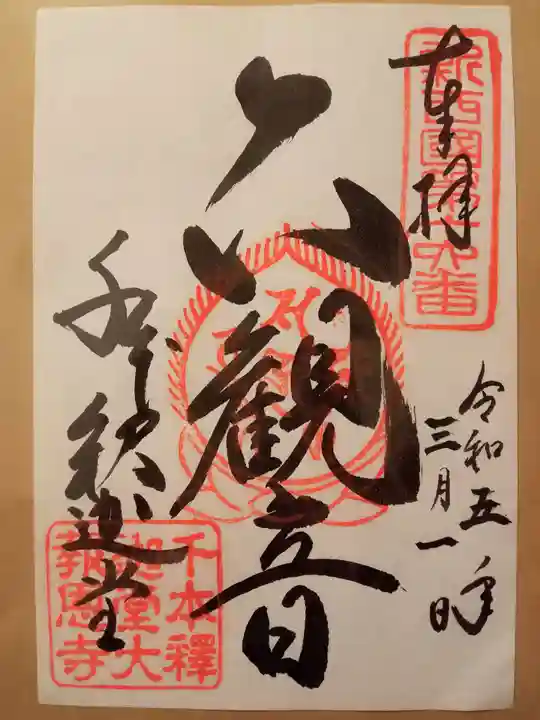 奉拝
新西國第十六番
令和五年
三月一日
六観音
千本釈迦堂
千本釋
迦堂大
報恩寺